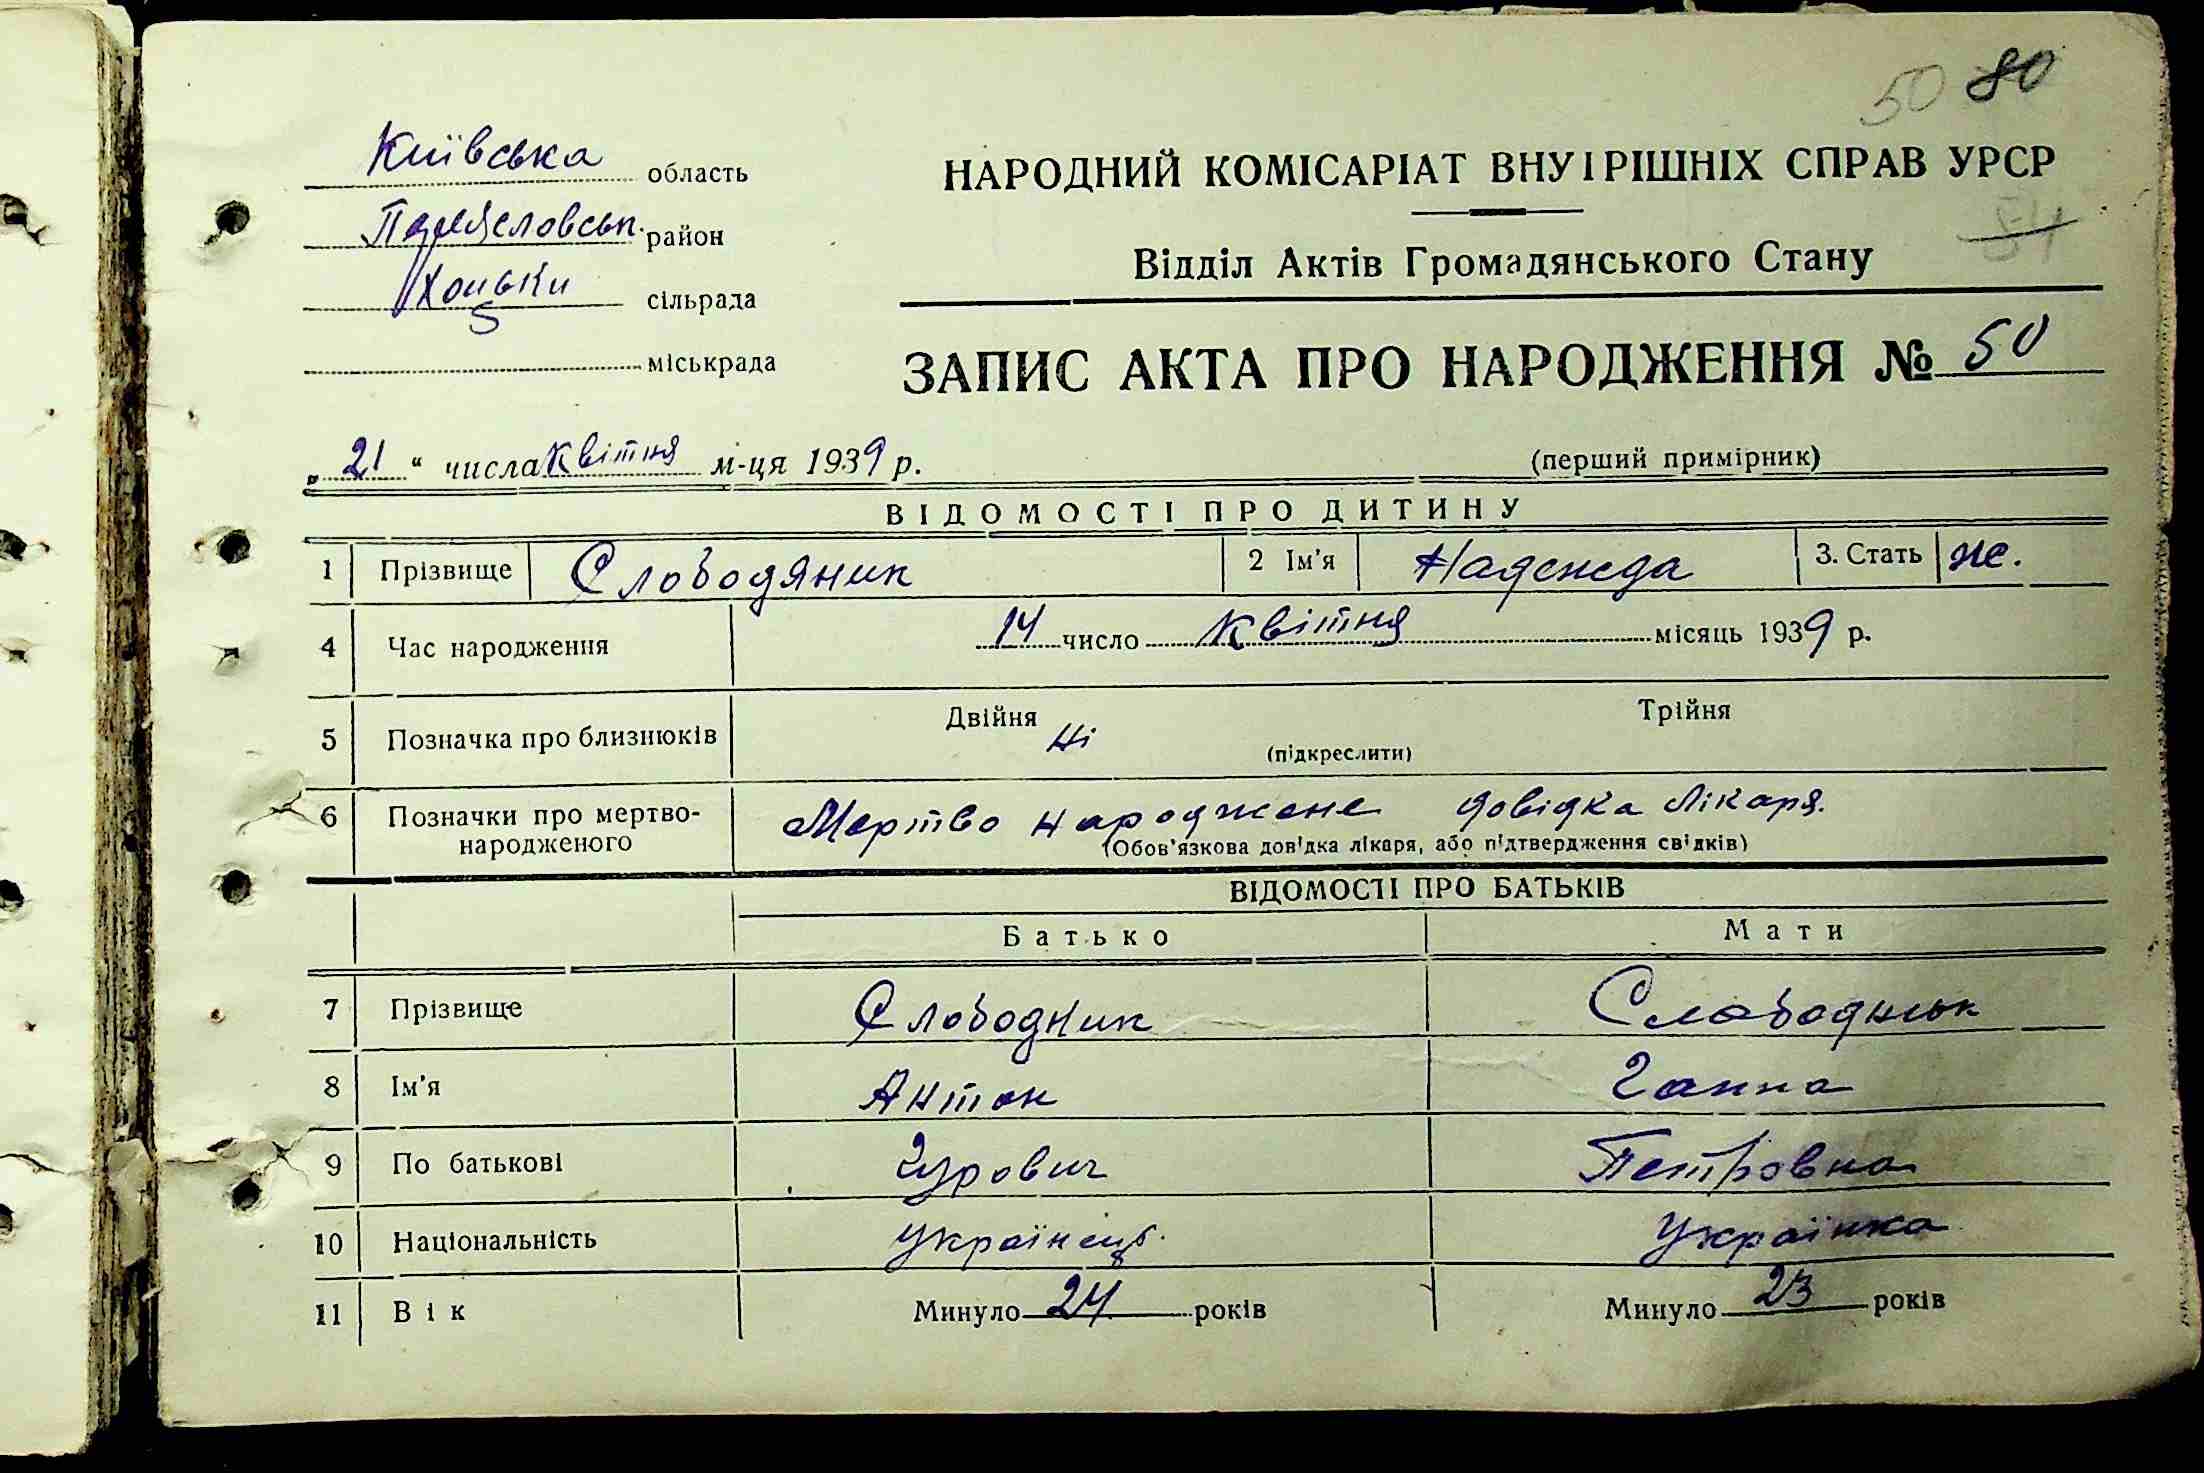 50 80
Київська область
Переяславськ. район
Хоцьки сільрада
міськрада
НАРОДНИЙ КОМІСАРІАТ ВНУТРІШНІХ СПРАВ УРСР
51
Відділ Актів Громадянського Стану
ЗАПИС АКТА ПРО НАРОДЖЕННЯ № 50
„21“ числа квітня м-ця 1939 р.
(перший примірник)
ВІДОМОСТІ ПРО ДИТИНУ
1 Прізвище Слободяник 2 Ім'я Надежда 3. Стать ж.
4 Час народження 14 число квітня місяць 1939 р.
5 Позначка про близнюків Двійня Ні (підкреслити) Трійня
6 Позначки про мертво-
народженого
Мертво народжене довідка лікаря.
(Обов'язкова довідка лікаря, або підтвердження свідків)
ВІДОМОСТІ ПРО БАТЬКІВ
Батько Мати
7 Прізвище Слободник Слабодньк
8 Ім'я Антон Ганна
9 По батькові Гурович Петровна
10 Національність українець. Українка
11 Вік Минуло 24 років Минуло 23 років